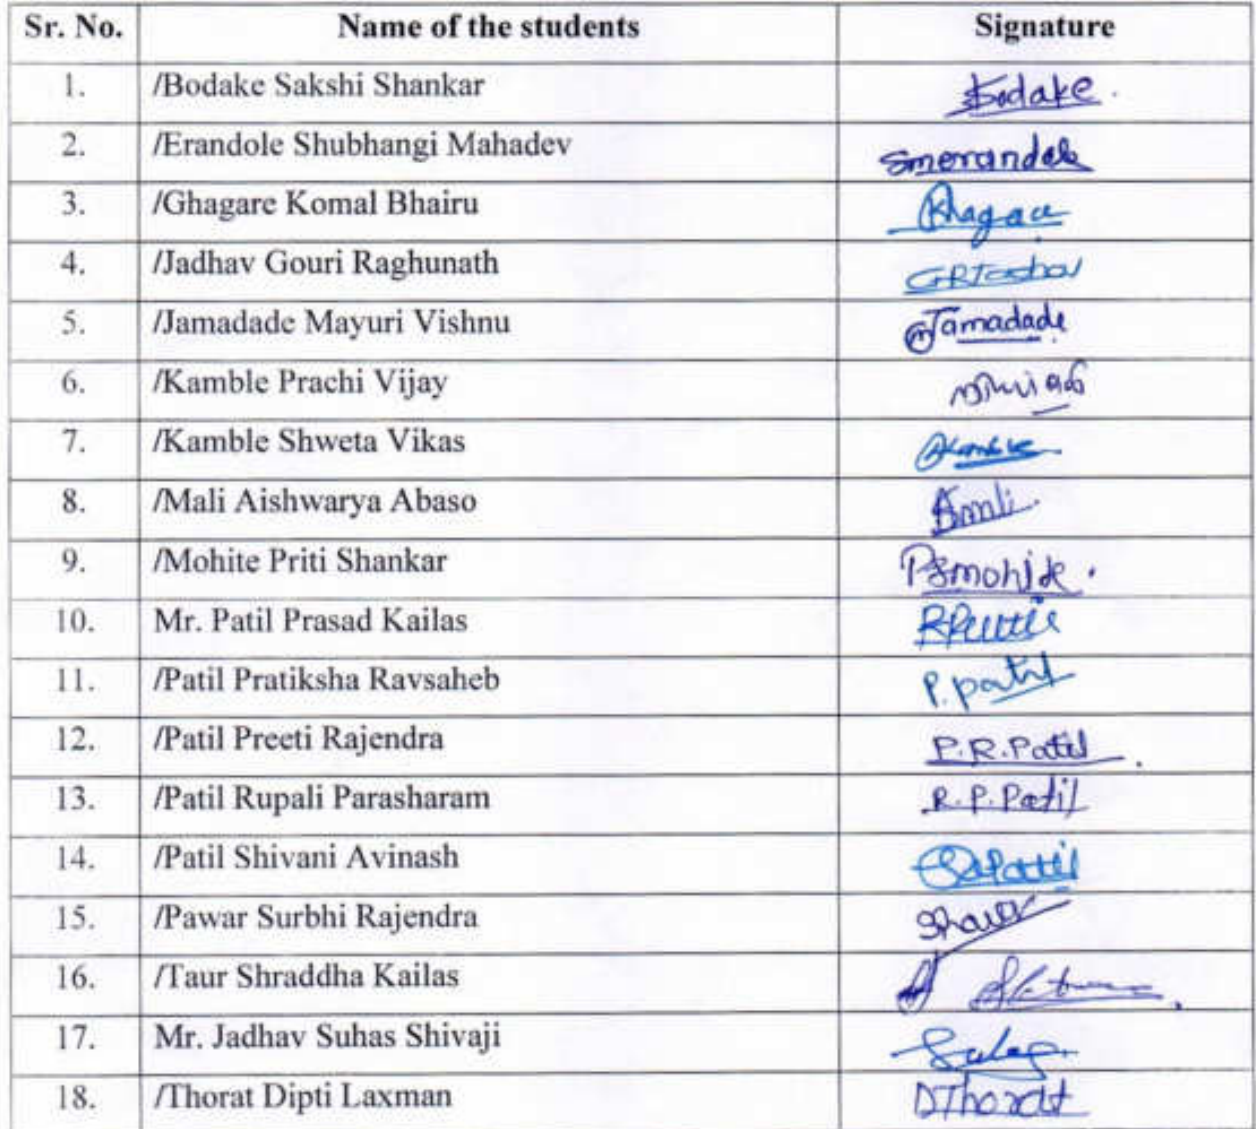 Sr. No. Name of the students Signature
1. /Bodake Sakshi Shankar Bodake.
2. /Erandole Shubhangi Mahadev smerandole
3. /Ghagare Komal Bhairu
4. /Jadhav Gouri Raghunath GRJadhav
5. /Jamadade Mayuri Vishnu Jamadade
6. /Kamble Prachi Vijay
7. /Kamble Shweta Vikas
8. /Mali Aishwarya Abaso Amali
9. /Mohite Priti Shankar PSmohite.
10. Mr. Patil Prasad Kailas
11. /Patil Pratiksha Ravsaheb P. patil
12. /Patil Preeti Rajendra P.R.Patil
13. /Patil Rupali Parasharam R.P.Patil
14. /Patil Shivani Avinash SAPatil
15. /Pawar Surbhi Rajendra
16. /Taur Shraddha Kailas
17. Mr. Jadhav Suhas Shivaji
18. /Thorat Dipti Laxman DThorat